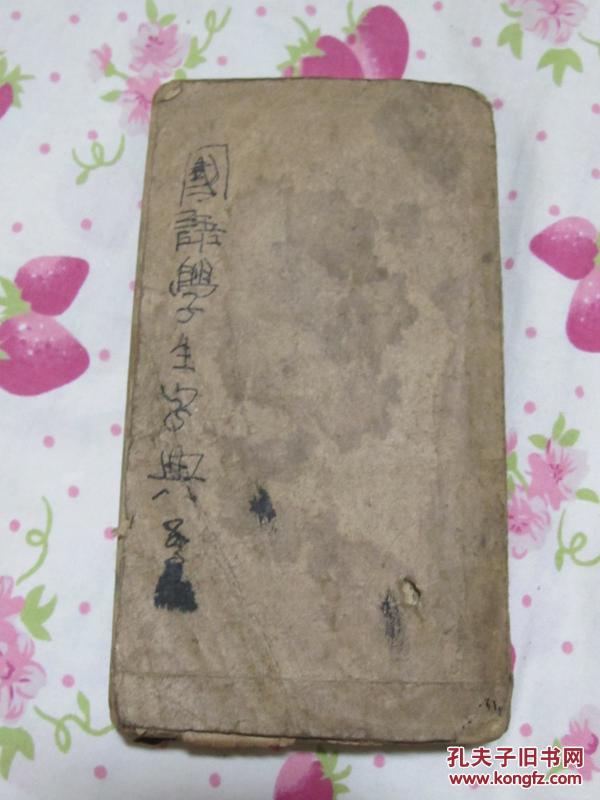 國語學生字典
孔夫子旧书网
www.kongfz.com